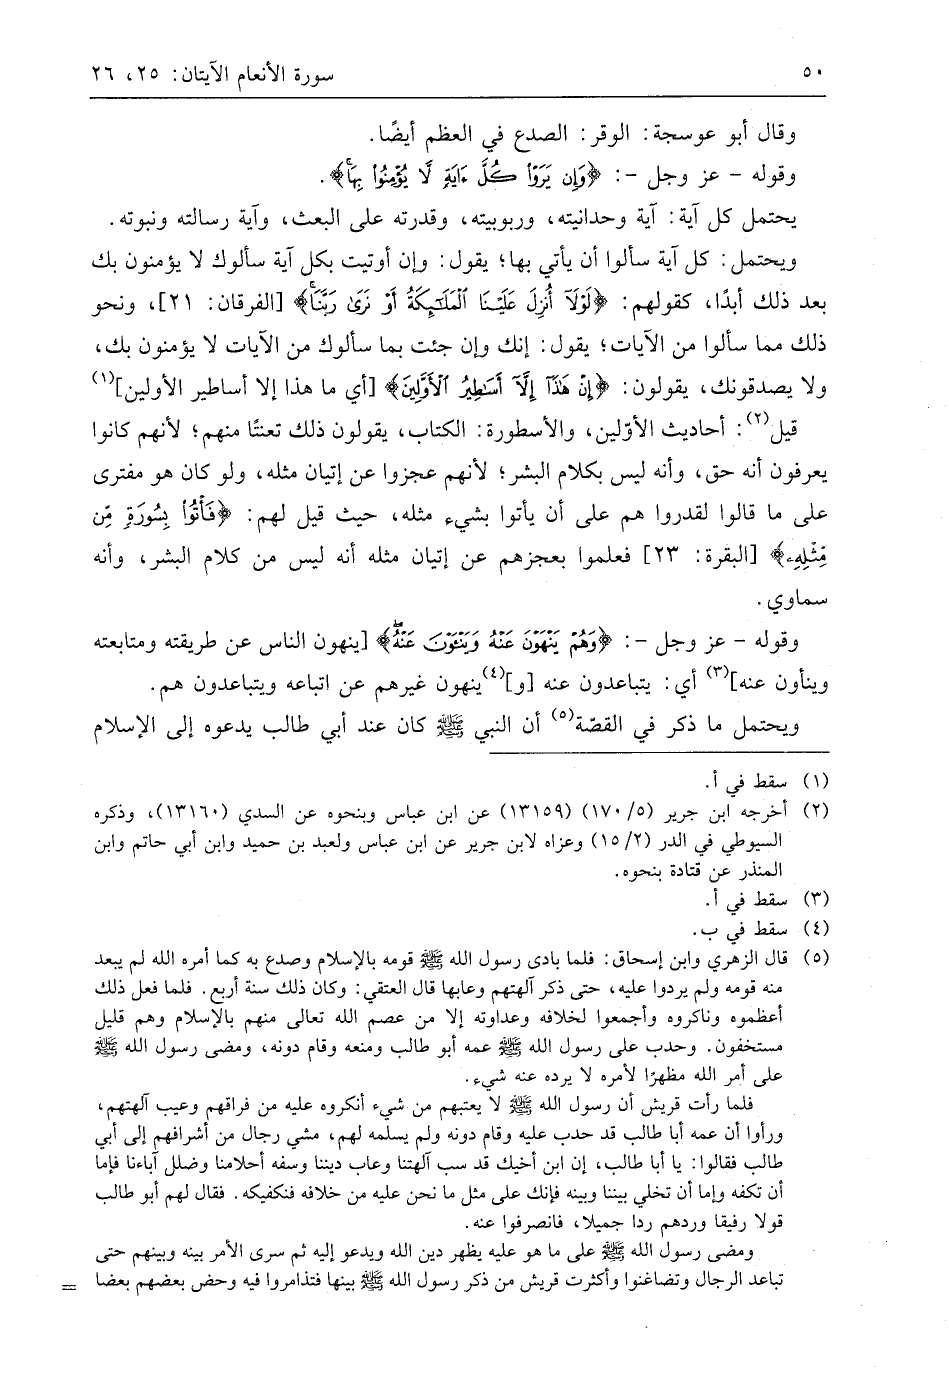 ٥٠ سورة الأنعام الآيتان: ٢٥، ٢٦
وقال أبو عوسجة: الوقر: الصدع في العظم أيضًا.
وقوله - عز وجل -: ﴿وَإِن يَرَوْا۟ كُلَّ ءَايَةٍ لَّا يُؤْمِنُوا۟ بِهَاۚ﴾.
يحتمل كل آية: آية وحدانيته، وربوبيته، وقدرته على البعث، وآية رسالته ونبوته.
ويحتمل: كل آية سألوا أن يأتي بها؛ يقول: وإن أوتيت بكل آية سألوك لا يؤمنون بك
بعد ذلك أبدًا، كقولهم: ﴿لَوْلَآ أُنزِلَ عَلَيْنَا ٱلْمَلَـٰٓئِكَةُ أَوْ نَرَىٰ رَبَّنَاۗ﴾ [الفرقان: ٢١]، ونحو
ذلك مما سألوا من الآيات؛ يقول: إنك وإن جئت بما سألوك من الآيات لا يؤمنون بك،
ولا يصدقونك، يقولون: ﴿إِنْ هَـٰذَآ إِلَّآ أَسَـٰطِيرُ ٱلْأَوَّلِينَ﴾ [أي ما هذا إلا أساطير الأولين](١)
قيل(٢): أحاديث الأوّلين، والأسطورة: الكتاب، يقولون ذلك تعنتًا منهم؛ لأنهم كانوا
يعرفون أنه حق، وأنه ليس بكلام البشر؛ لأنهم عجزوا عن إتيان مثله، ولو كان هو مفترى
على ما قالوا لقدروا هم على أن يأتوا بشيء مثله، حيث قيل لهم: ﴿فَأْتُوا۟ بِسُورَةٍ مِّن
مِّثْلِهِۦ﴾ [البقرة: ٢٣] فعلموا بعجزهم عن إتيان مثله أنه ليس من كلام البشر، وأنه
سماوي.
وقوله - عز وجل -: ﴿وَهُمْ يَنْهَوْنَ عَنْهُ وَيَنْـَٔوْنَ عَنْهُۖ﴾ [ينهون الناس عن طريقته ومتابعته
وينأون عنه](٣) أي: يتباعدون عنه [و](٤)ينهون غيرهم عن اتباعه ويتباعدون هم.
ويحتمل ما ذكر في القصّة(٥) أن النبي ﷺ كان عند أبي طالب يدعوه إلى الإسلام
(١) سقط في أ.
(٢) أخرجه ابن جرير (٥/ ١٧٠) (١٣١٥٩) عن ابن عباس وبنحوه عن السدي (١٣١٦٠)، وذكره
السيوطي في الدر (٢/ ١٥) وعزاه لابن جرير عن ابن عباس ولعبد بن حميد وابن أبي حاتم وابن
المنذر عن قتادة بنحوه.
(٣) سقط في أ.
(٤) سقط في ب.
(٥) قال الزهري وابن إسحاق: فلما بادى رسول الله ﷺ قومه بالإسلام وصدع به كما أمره الله لم يبعد
منه قومه ولم يردوا عليه، حتى ذكر آلهتهم وعابها قال العتقي: وكان ذلك سنة أربع. فلما فعل ذلك
أعظموه وناكروه وأجمعوا لخلافه وعداوته إلا من عصم الله تعالى منهم بالإسلام وهم قليل
مستخفون. وحدب على رسول الله ﷺ عمه أبو طالب ومنعه وقام دونه، ومضى رسول الله ﷺ
على أمر الله مظهرًا لأمره لا يرده عنه شيء.
فلما رأت قريش أن رسول الله ﷺ لا يعتبهم من شيء أنكروه عليه من فراقهم وعيب آلهتهم،
ورأوا أن عمه أبا طالب قد حدب عليه وقام دونه ولم يسلمه لهم، مشي رجال من أشرافهم إلى أبي
طالب فقالوا: يا أبا طالب، إن ابن أخيك قد سب آلهتنا وعاب ديننا وسفه أحلامنا وضلل آباءنا فإما
أن تكفه وإما أن تخلي بيننا وبينه فإنك على مثل ما نحن عليه من خلافه فنكفيكه. فقال لهم أبو طالب
قولا رفيقا وردهم ردا جميلا، فانصرفوا عنه.
ومضى رسول الله ﷺ على ما هو عليه يظهر دين الله ويدعو إليه ثم سرى الأمر بينه وبينهم حتى
تباعد الرجال وتضاغنوا وأكثرت قريش من ذكر رسول الله ﷺ بينها فتذامروا فيه وحض بعضهم بعضا =